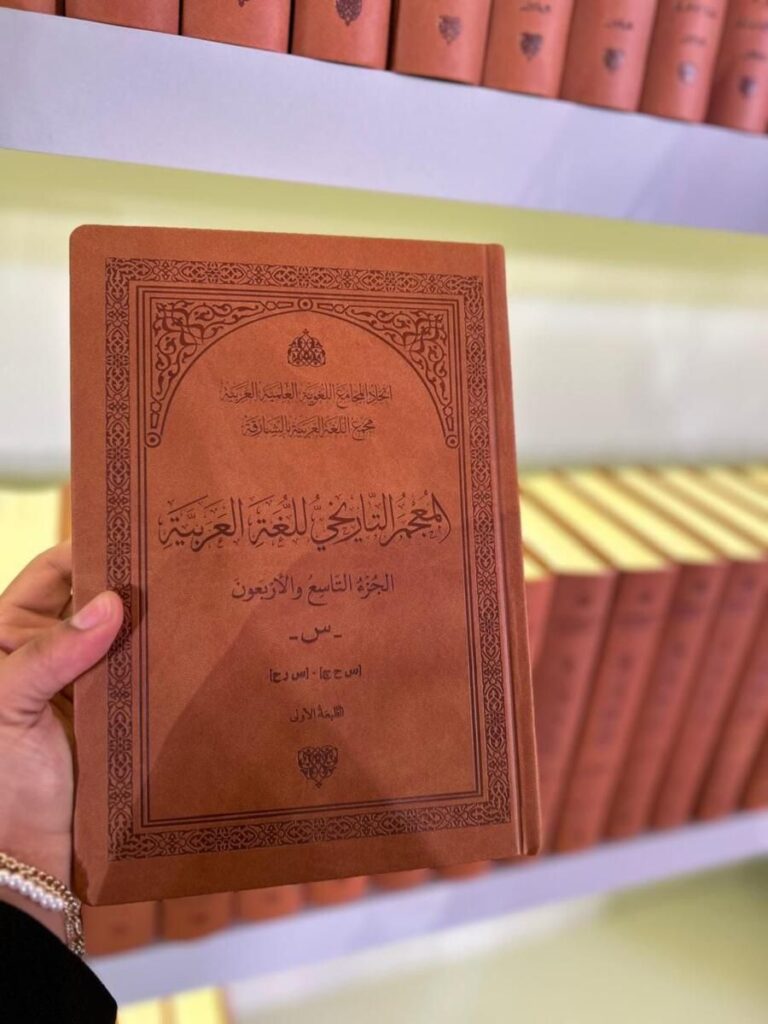 اتحاد المجامع اللغوية العلمية العربية
مجمع اللغة العربية بالشارقة
المُعجَمُ التَّاريخيُّ للُّغَةِ العَرَبيَّةِ
الجُزءُ التَّاسِعُ والأَربَعونَ
- س -
[س ح ج] - [س ر ح]
الطَّبعَةُ الأولى